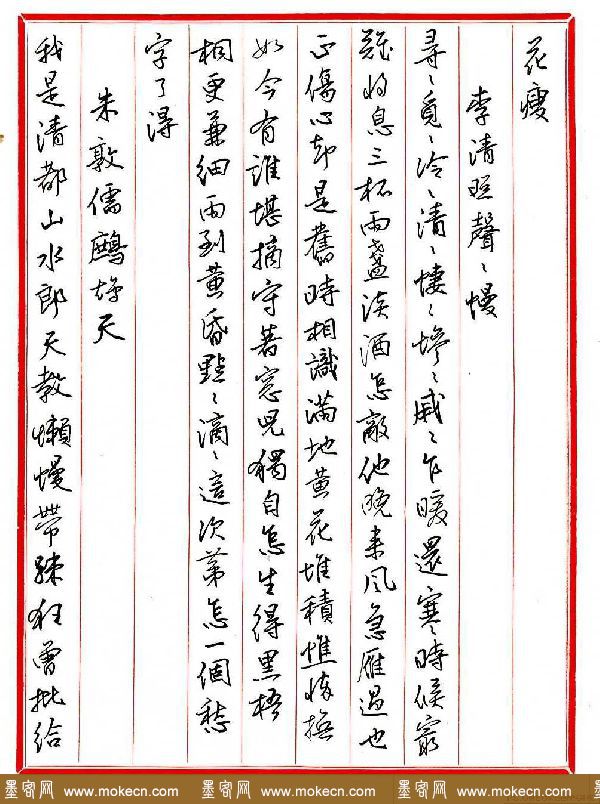 花瘦
李清照聲〻慢
尋〻覓〻冷〻清〻悽〻慘〻戚〻乍暖還寒時候最
難將息三杯兩盞淡酒怎敵他晚來風急雁過也
正傷心却是舊時相識滿地黃花堆積憔悴損
如今有誰堪摘守著窓兒獨自怎生得黑梧
桐更兼細雨到黃昏點〻滴〻這次第怎一個愁
字了得
朱敦儒鷓鴣天
我是清都山水郎天教懶慢帶疎狂曾批給
墨客网 www.mokecn.com 墨客网 www.mokecn.com 墨客网 www.mokecn.com